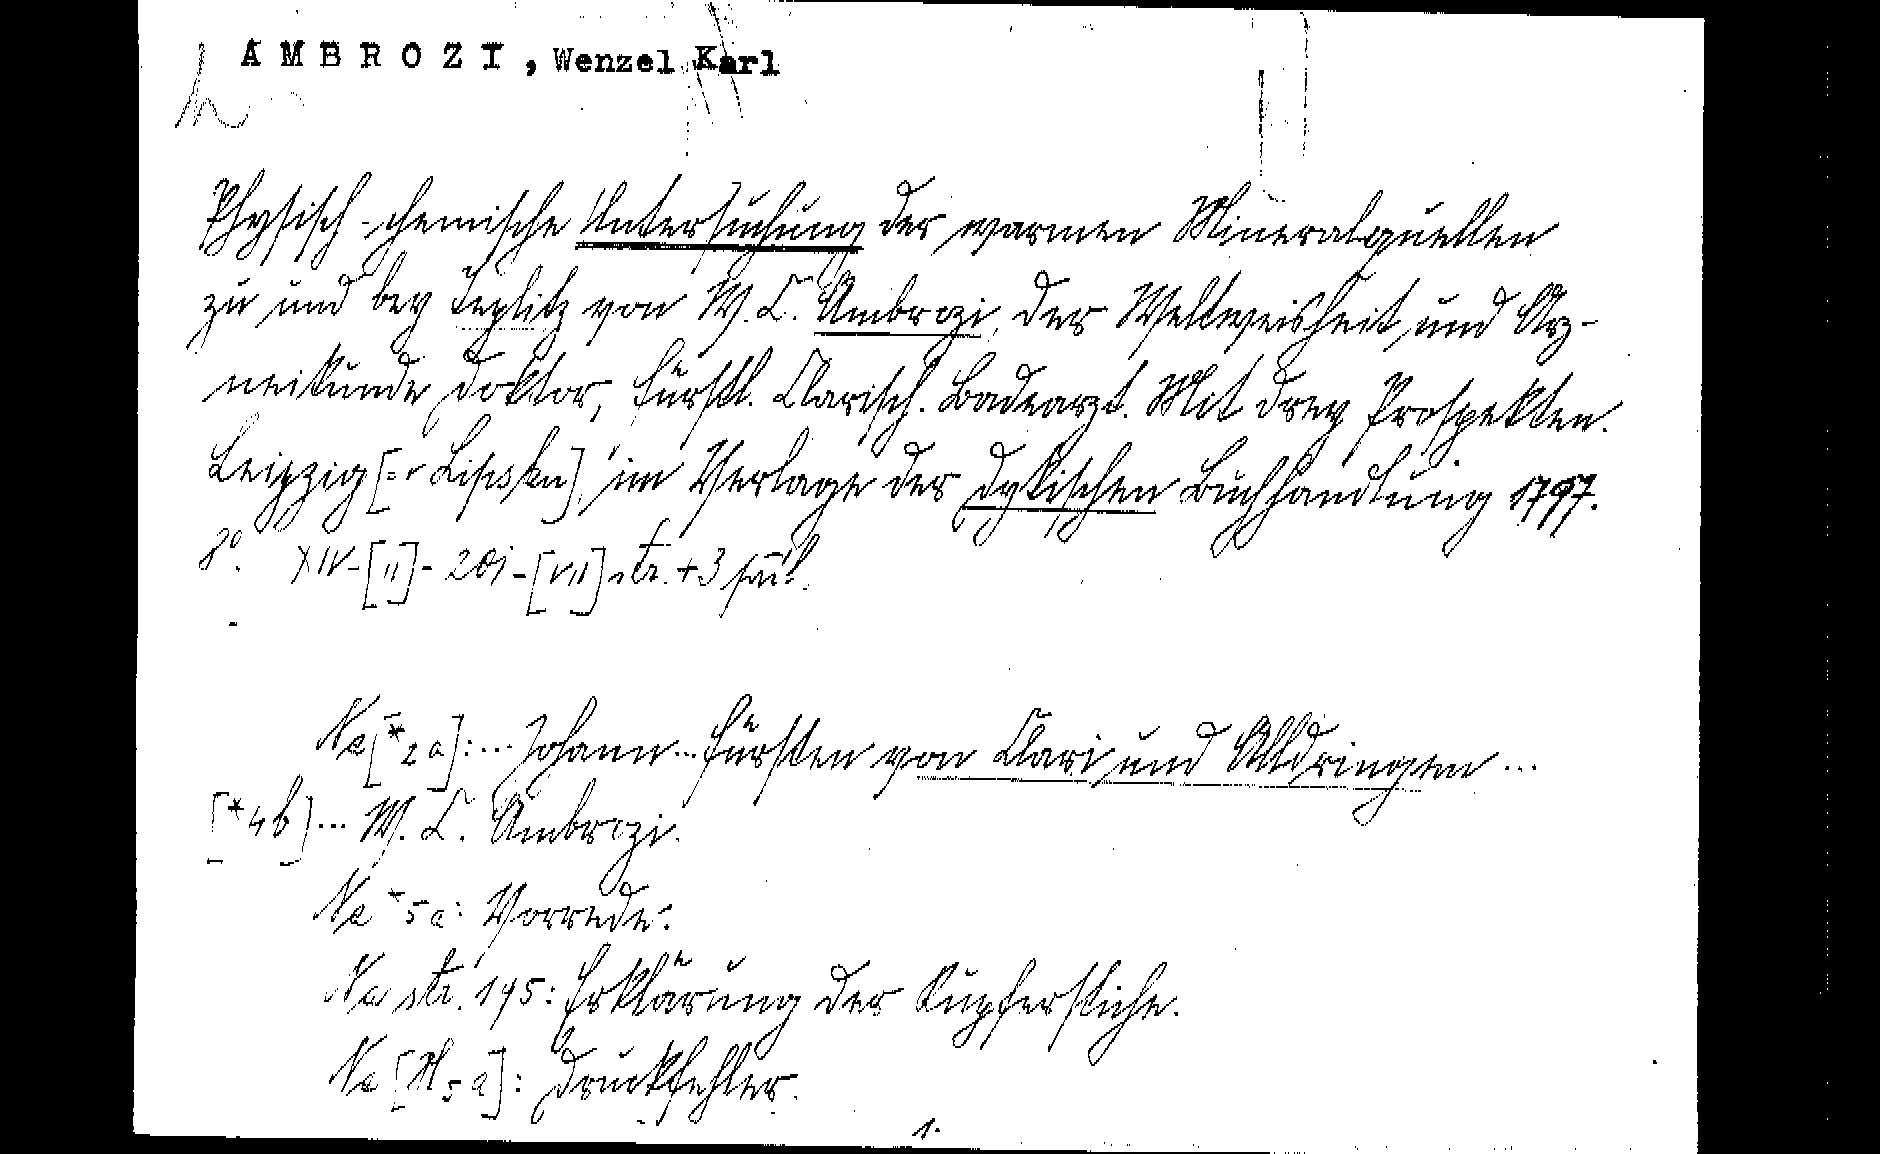 AMBROZI, Wenzel Karl
Physisch-chemische Untersuchung der warmen Mineralquellen
zu und bey Teplitz von W. C. Ambrozi, der Weltweisheit und Arz-
neikunde Doktor, Fürstl. Clarisch. Badearzt. Mit drey Prospekten.
Leipzig [= v Lipsku], im Verlage der Dykischen Buchhandlung 1797.
8º. XIV-[II]-201-[VII] str. + 3 příl.
Na [*2a]: ... Johann ... Fürsten von Clari und Aldringen ...
[*4b] ... W. C. Ambrozi.
Na *5a: Vorrede.
Na str. 195: Erklärung der Kupferstiche.
Na [N5a]: Druckfehler.
1.